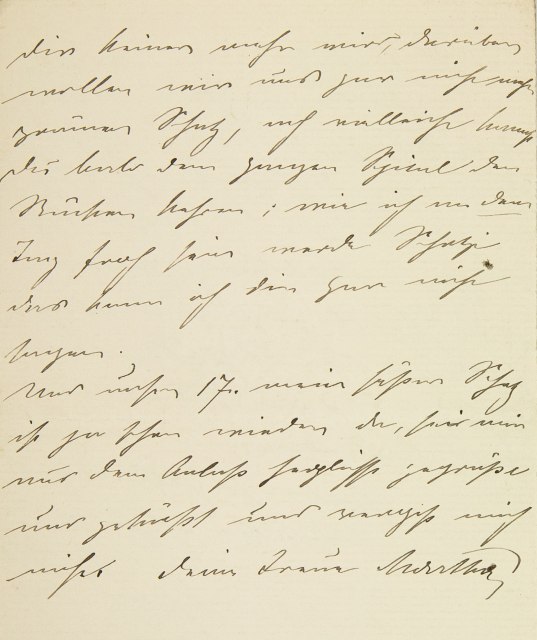 dir keiner mehr wird, darüber
wollen wir uns gar nicht mehr
grämen Schatz, ach vielleicht kannst
du bald dem ganzen Spital den
Rücken kehren; wie ich an dem
Tag froh sein werde Schatzi
das kann ich dir gar nicht
sagen.
Und unser 17. mein süßer Schatz
ist ja schon wieder da, sei mir
aus dem Anlaß herzlichst gegrüßt
und geküßt und vergiß mich
nicht deine treue Martha